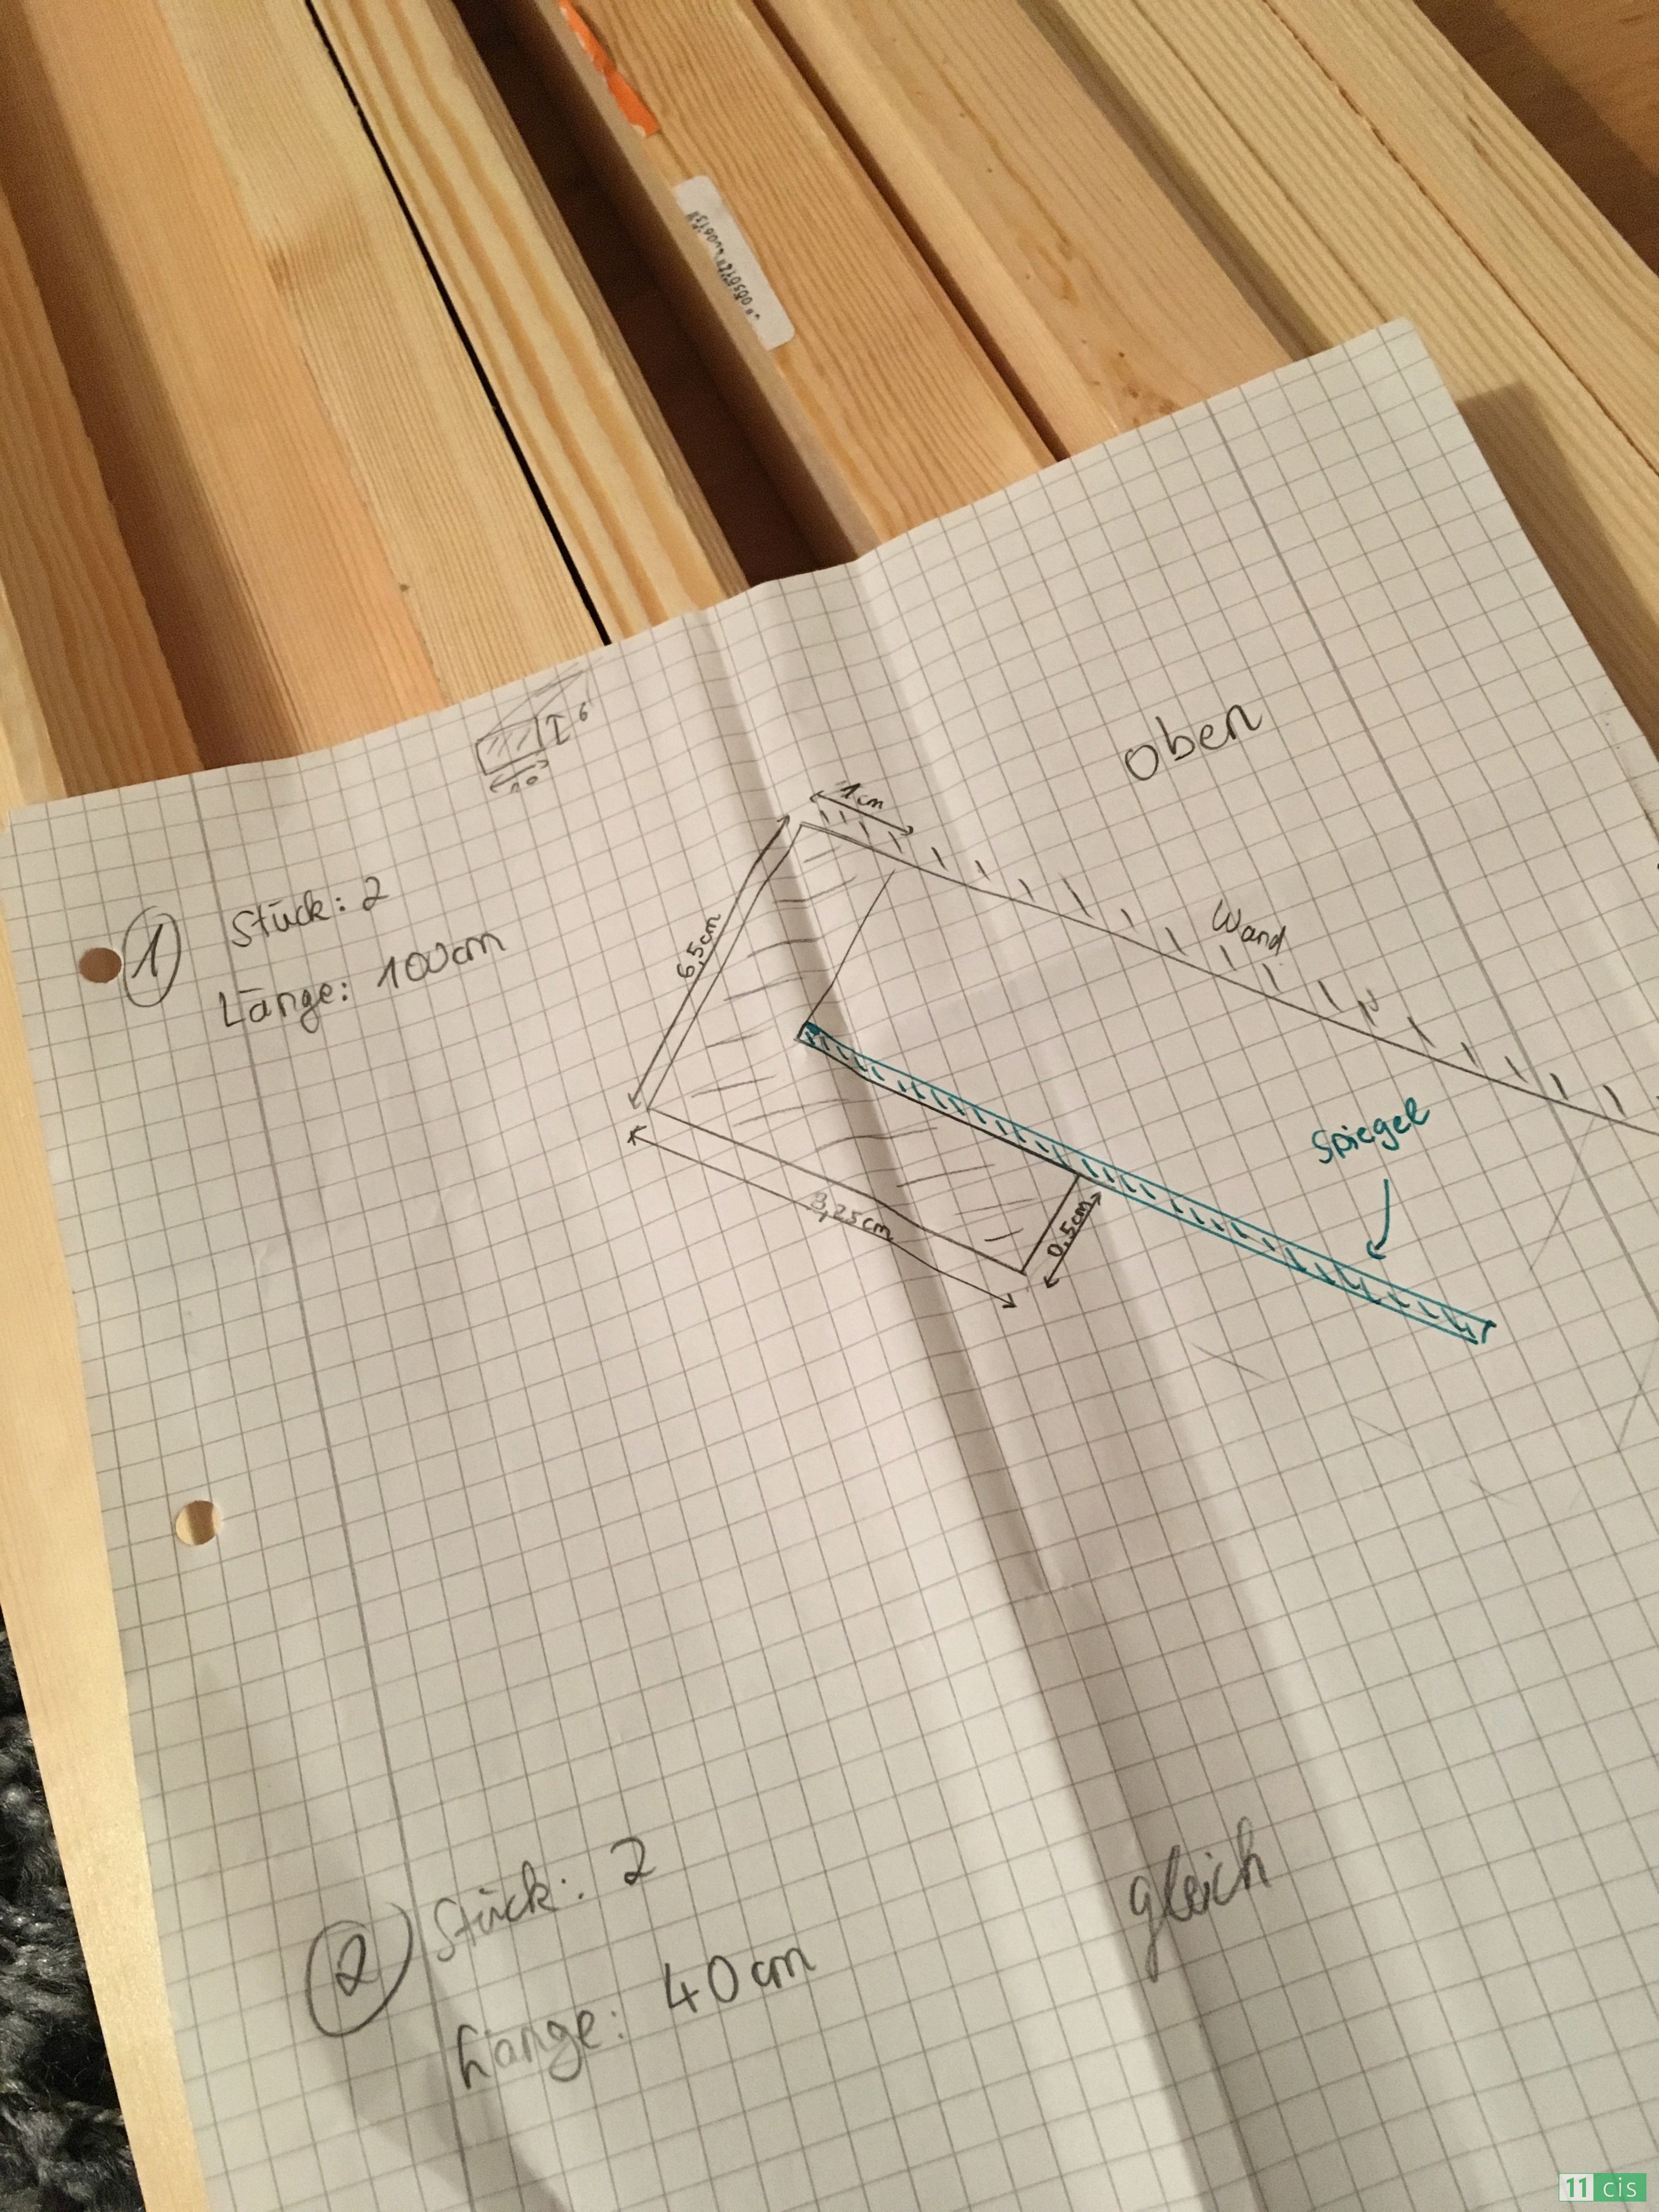 6
10
Oben
1cm
① Stück: 2
Länge: 100cm
6,5cm
Wand
Spiegel
3,25cm
0,5cm
② Stück: 2
Länge: 40cm
gleich
11 cis